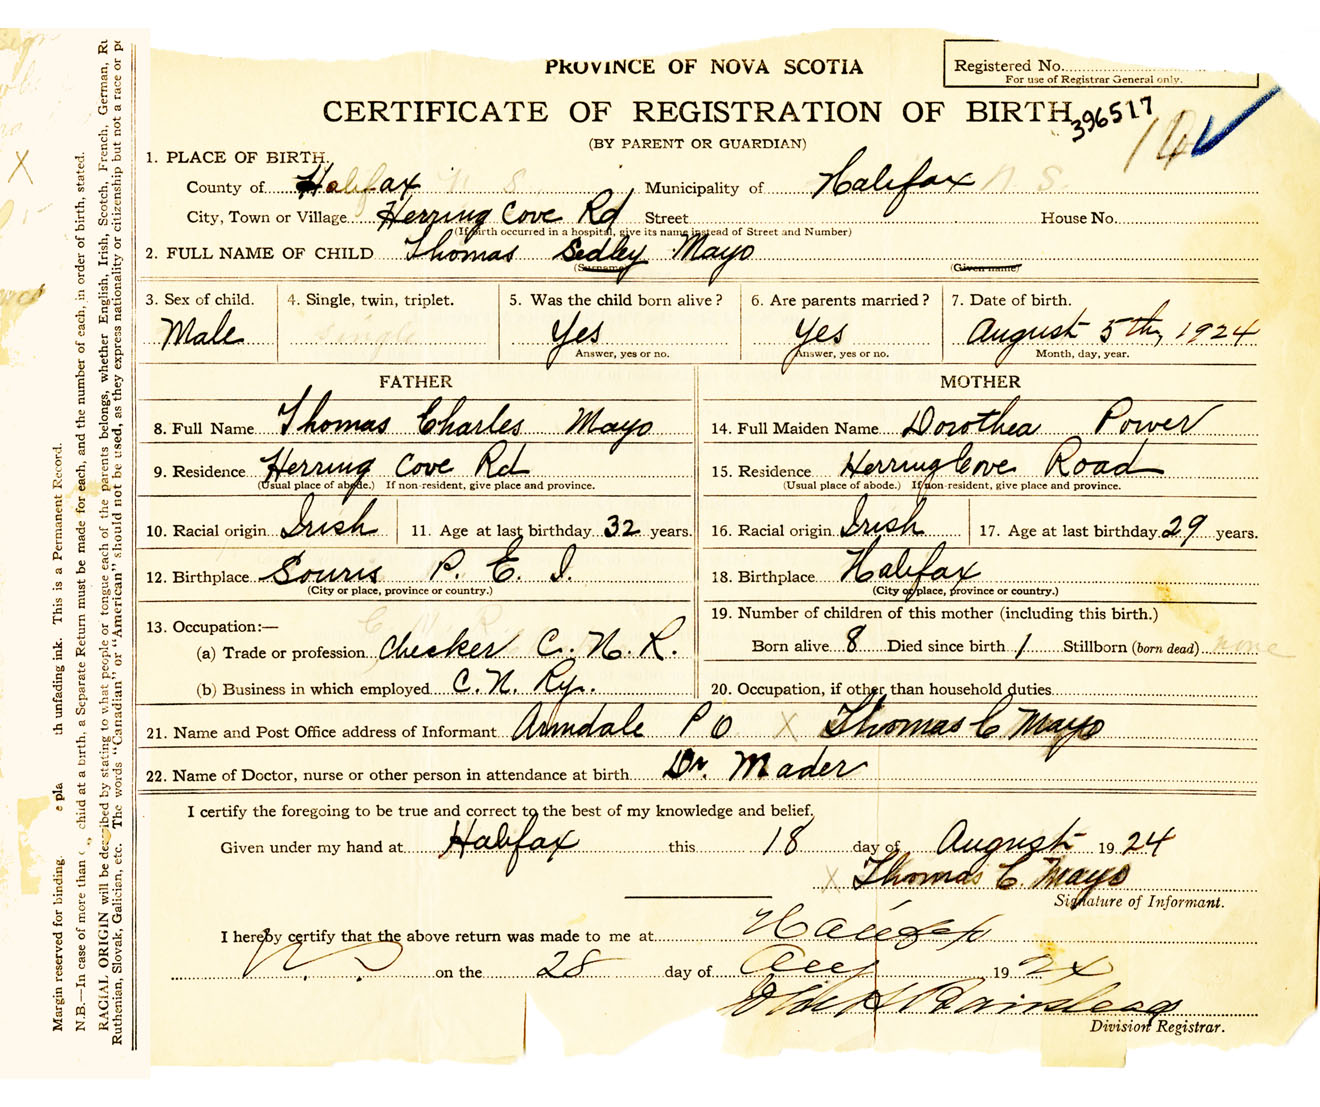 PROVINCE OF NOVA SCOTIA
Registered No.
For use of Registrar General only.
CERTIFICATE OF REGISTRATION OF BIRTH
396517
(BY PARENT OR GUARDIAN)
1. PLACE OF BIRTH.
County of Halifax N. S. Municipality of Halifax N. S.
City, Town or Village Herring Cove Rd Street House No.
(If birth occurred in a hospital, give its name instead of Street and Number)
2. FULL NAME OF CHILD Thomas Sedley Mayo
(Surname) (Given name)
3. Sex of child. 4. Single, twin, triplet. 5. Was the child born alive? 6. Are parents married? 7. Date of birth.
Male Single Yes Yes August 5th, 1924
Answer, yes or no. Answer, yes or no. Month, day, year.
FATHER MOTHER
8. Full Name Thomas Charles Mayo 14. Full Maiden Name Dorothea Power
9. Residence Herring Cove Rd 15. Residence Herring Cove Road
(Usual place of abode.) If non-resident, give place and province. (Usual place of abode.) If non-resident, give place and province.
10. Racial origin Irish 11. Age at last birthday 32 years. 16. Racial origin Irish 17. Age at last birthday 29 years.
12. Birthplace Souris P. E. I. 18. Birthplace Halifax
(City or place, province or country.) (City or place, province or country.)
13. Occupation:— 19. Number of children of this mother (including this birth.)
(a) Trade or profession checker C. N. R. Born alive 8 Died since birth 1 Stillborn (born dead) none
(b) Business in which employed C. N. Ry. 20. Occupation, if other than household duties
21. Name and Post Office address of Informant Armdale P O X Thomas C Mayo
22. Name of Doctor, nurse or other person in attendance at birth Dr. Mader
I certify the foregoing to be true and correct to the best of my knowledge and belief,
Given under my hand at Halifax this 18 day of August 1924
X Thomas C. Mayo
Signature of Informant.
I hereby certify that the above return was made to me at Halifax
N. S. on the 28 day of Aug 1924
Division Registrar.
Margin reserved for binding. th unfading ink. This is a Permanent Record.
N.B.—In case of more than child at a birth, a Separate Return must be made for each, and the number of each, in order of birth, stated.
RACIAL ORIGIN will be described by stating to what people or tongue each of the parents belongs, whether English, Irish, Scotch, French, German,
Ruthenian, Slovak, Galician, etc. The words "Canadian" or "American" should not be used, as they express nationality or citizenship but not a race or